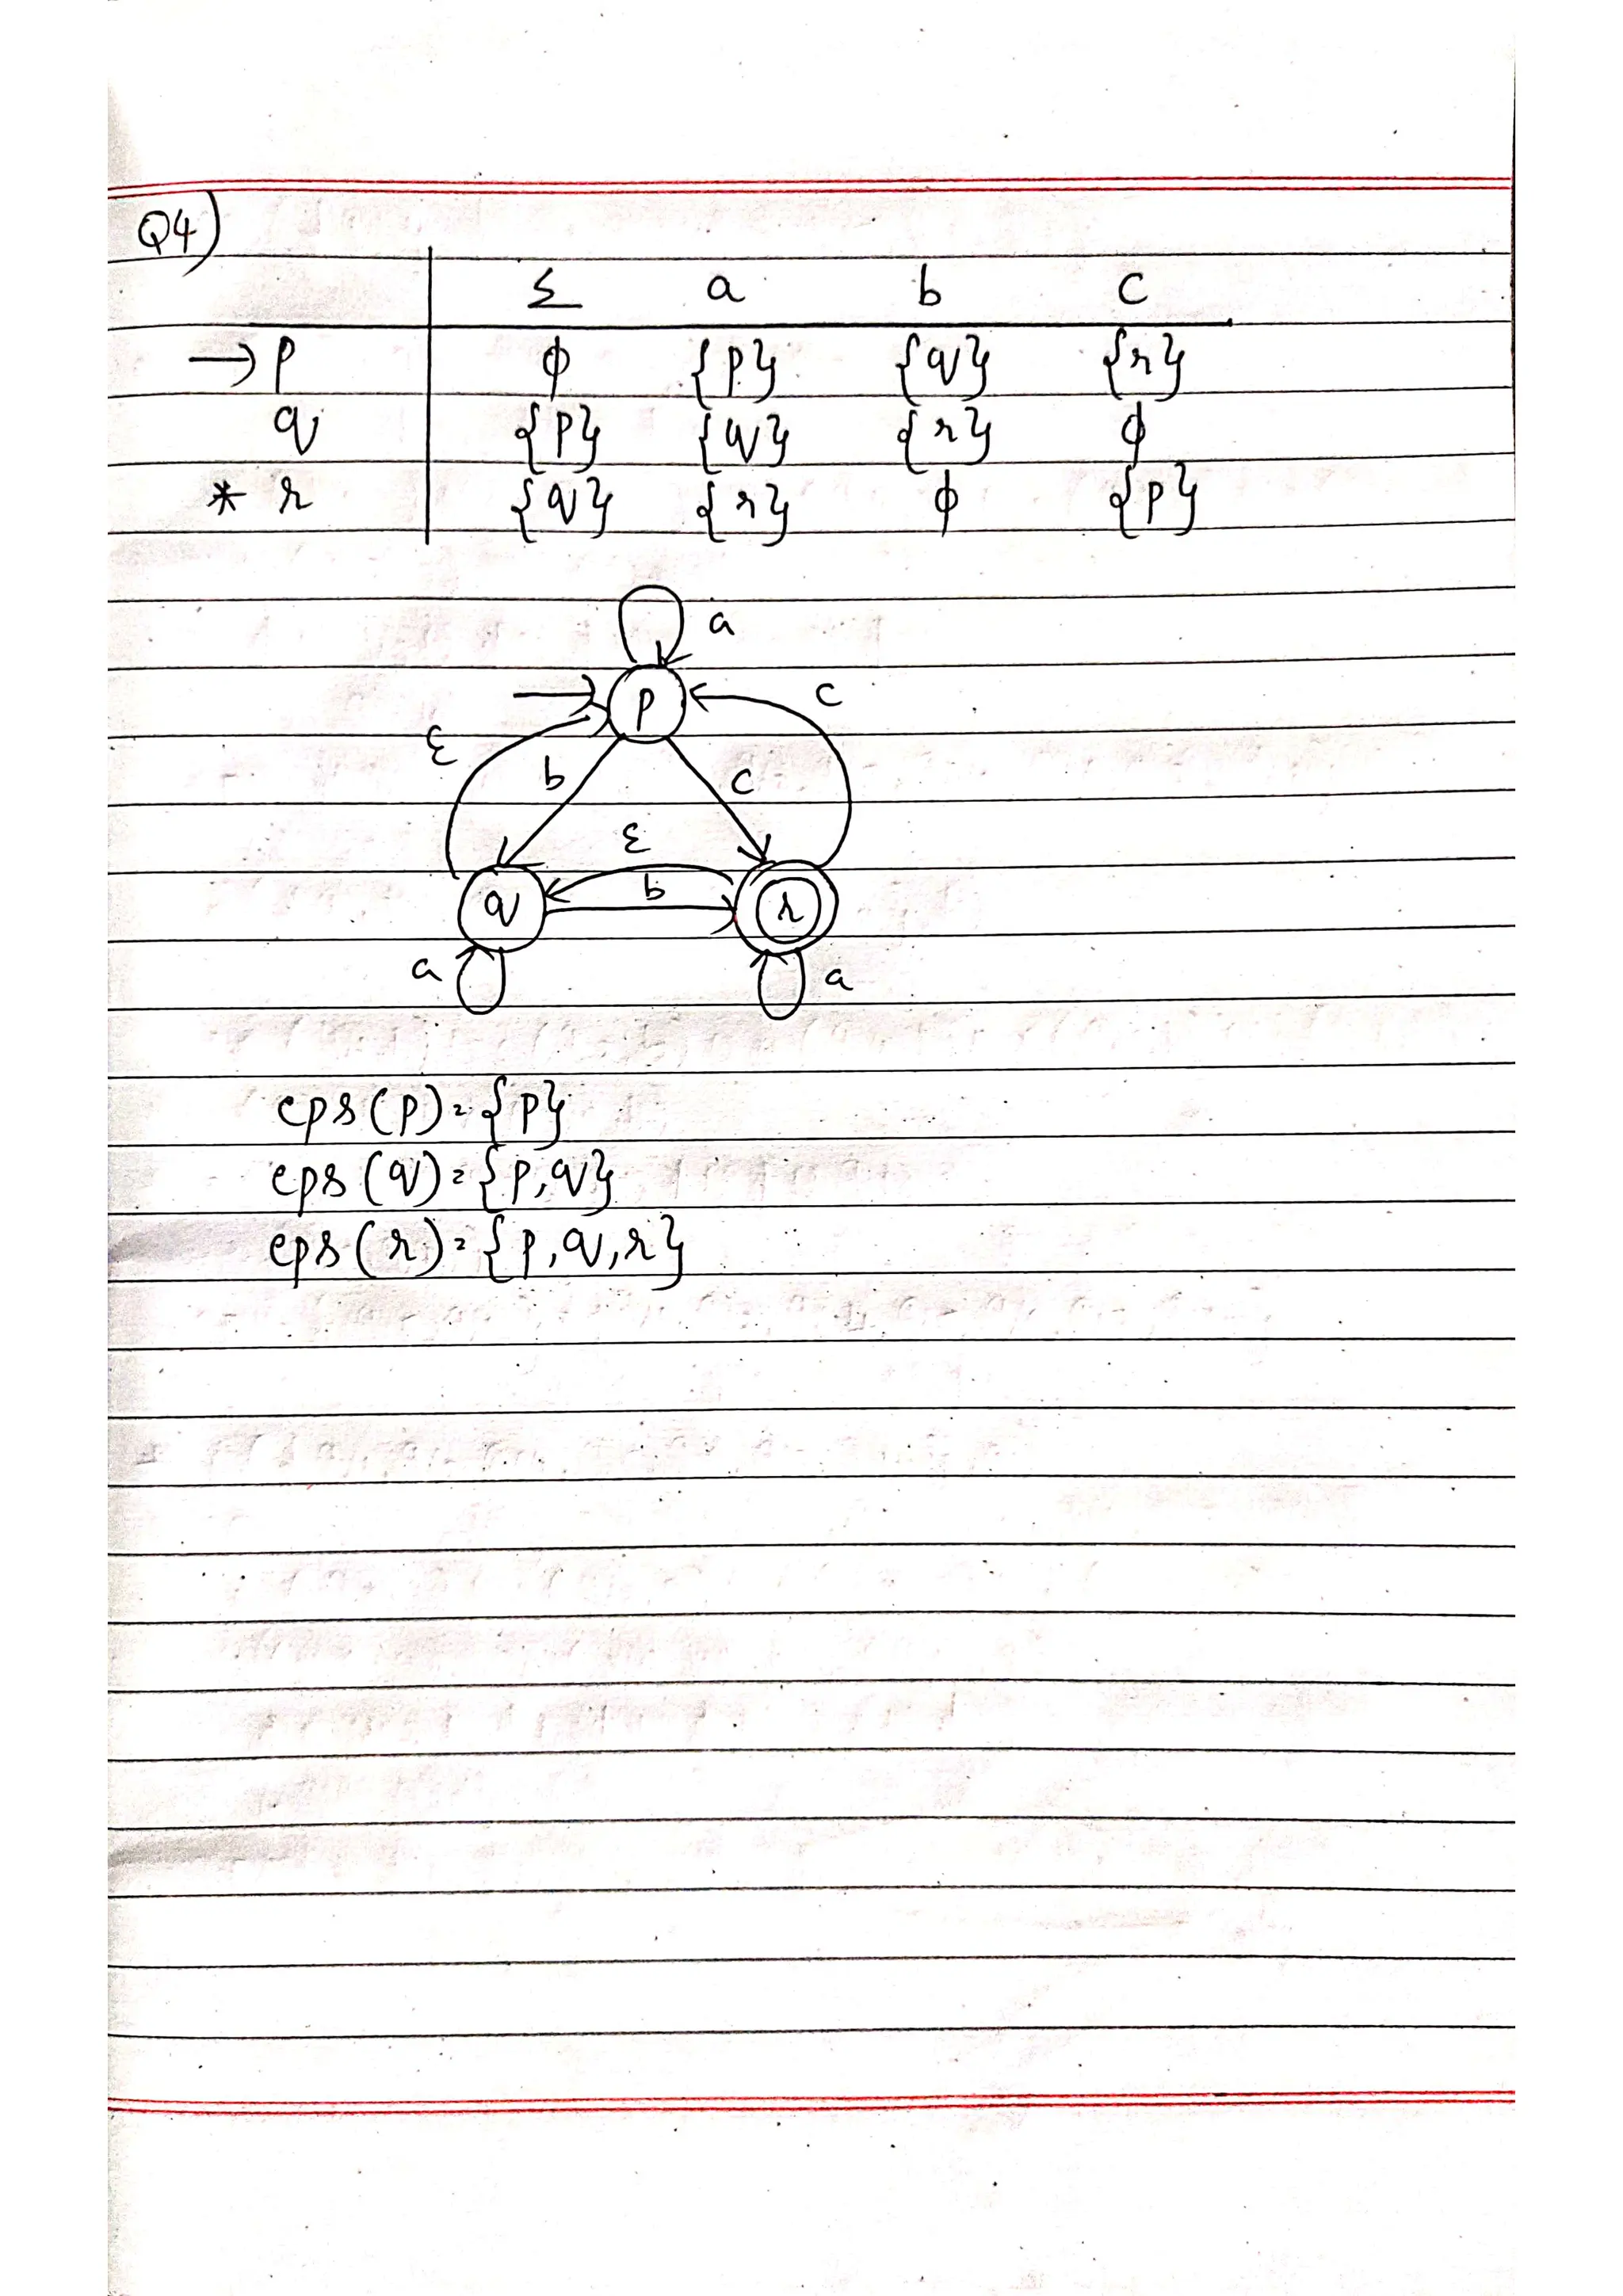 Q4)
Σ a b c
→ p ϕ {p} {q} {r}
q {p} {q} {r} ϕ
* r {q} {r} ϕ {p}
a
p
c
ε
b
c
ε
b
q
r
a
a
eps(p) = {p}
eps(q) = {p,q}
eps(r) = {p,q,r}